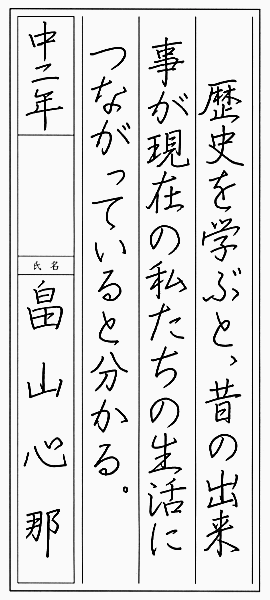 歴史を学ぶと、昔の出来
事が現在の私たちの生活に
つながっていると分かる。
中二年
氏名
畠山心那